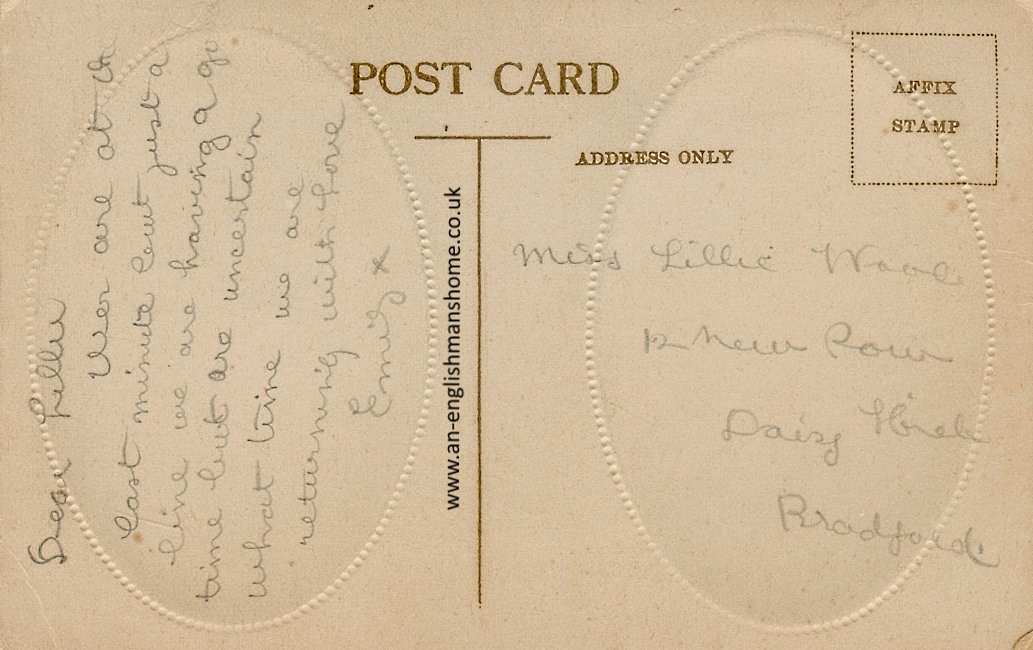 POST CARD
AFFIX
STAMP
ADDRESS ONLY
Dear Lillie
are at the
last minute but just a
line we are having a go
time but are uncertain
what time we are
returning with love
Emily x
www.an-englishmanshome.co.uk
Miss Lillie Wood
12 New Row
Daisy Hill
Bradford